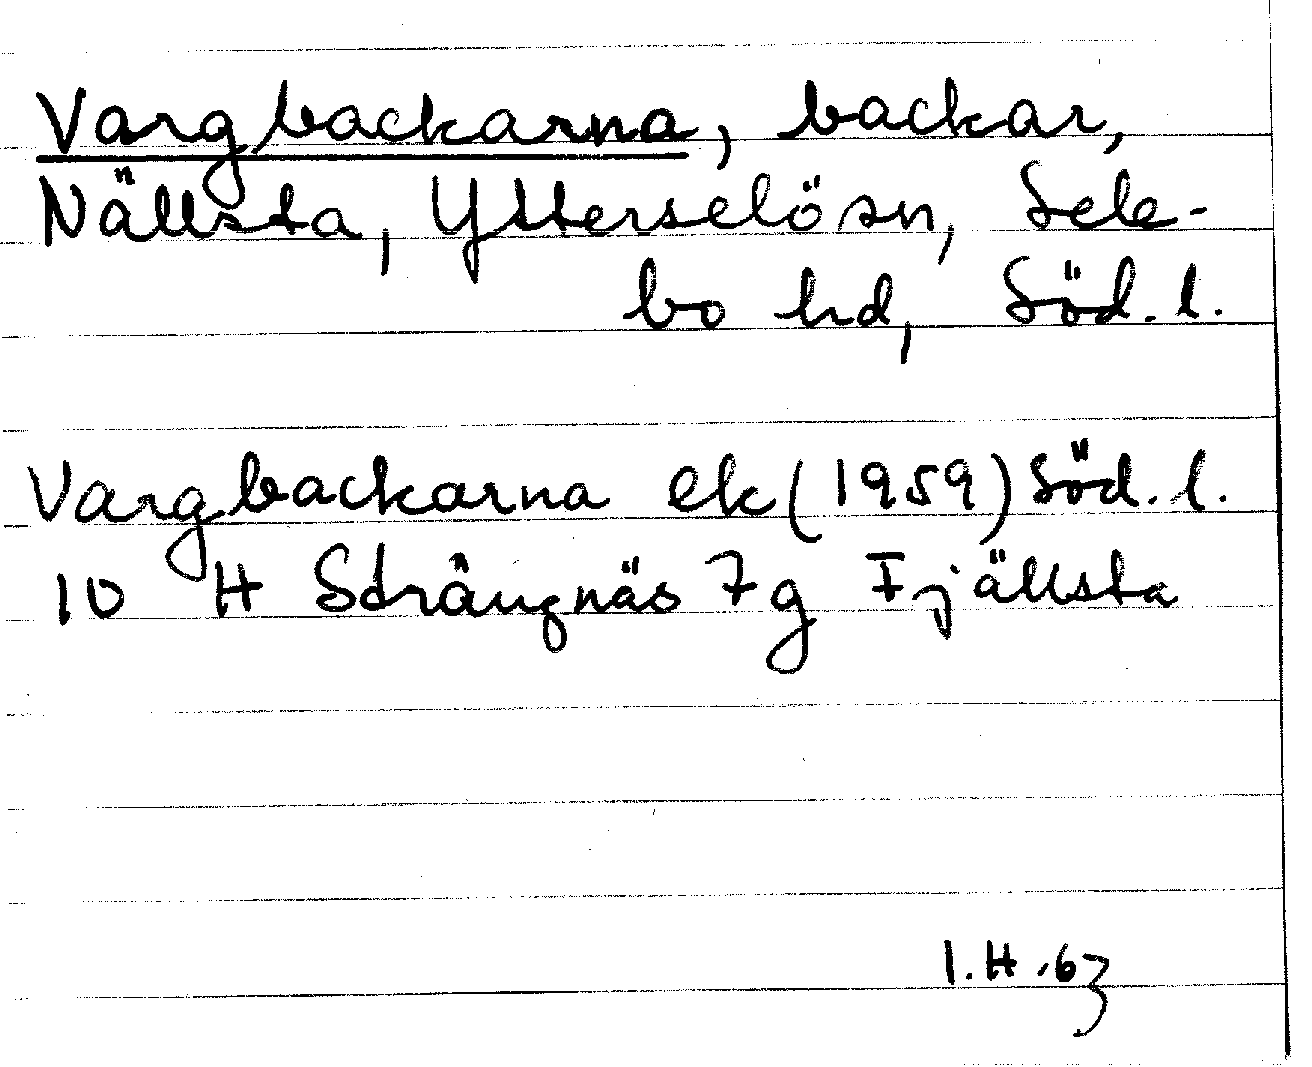 Vargbackarna, backar,
Nällsta, Ytterselö sn, Sele-
bo hd, Söd. l.
Vargbackarna ek (1959) Söd. l.
10 H Strängnäs 7 g Fjällsta
I. H. 63